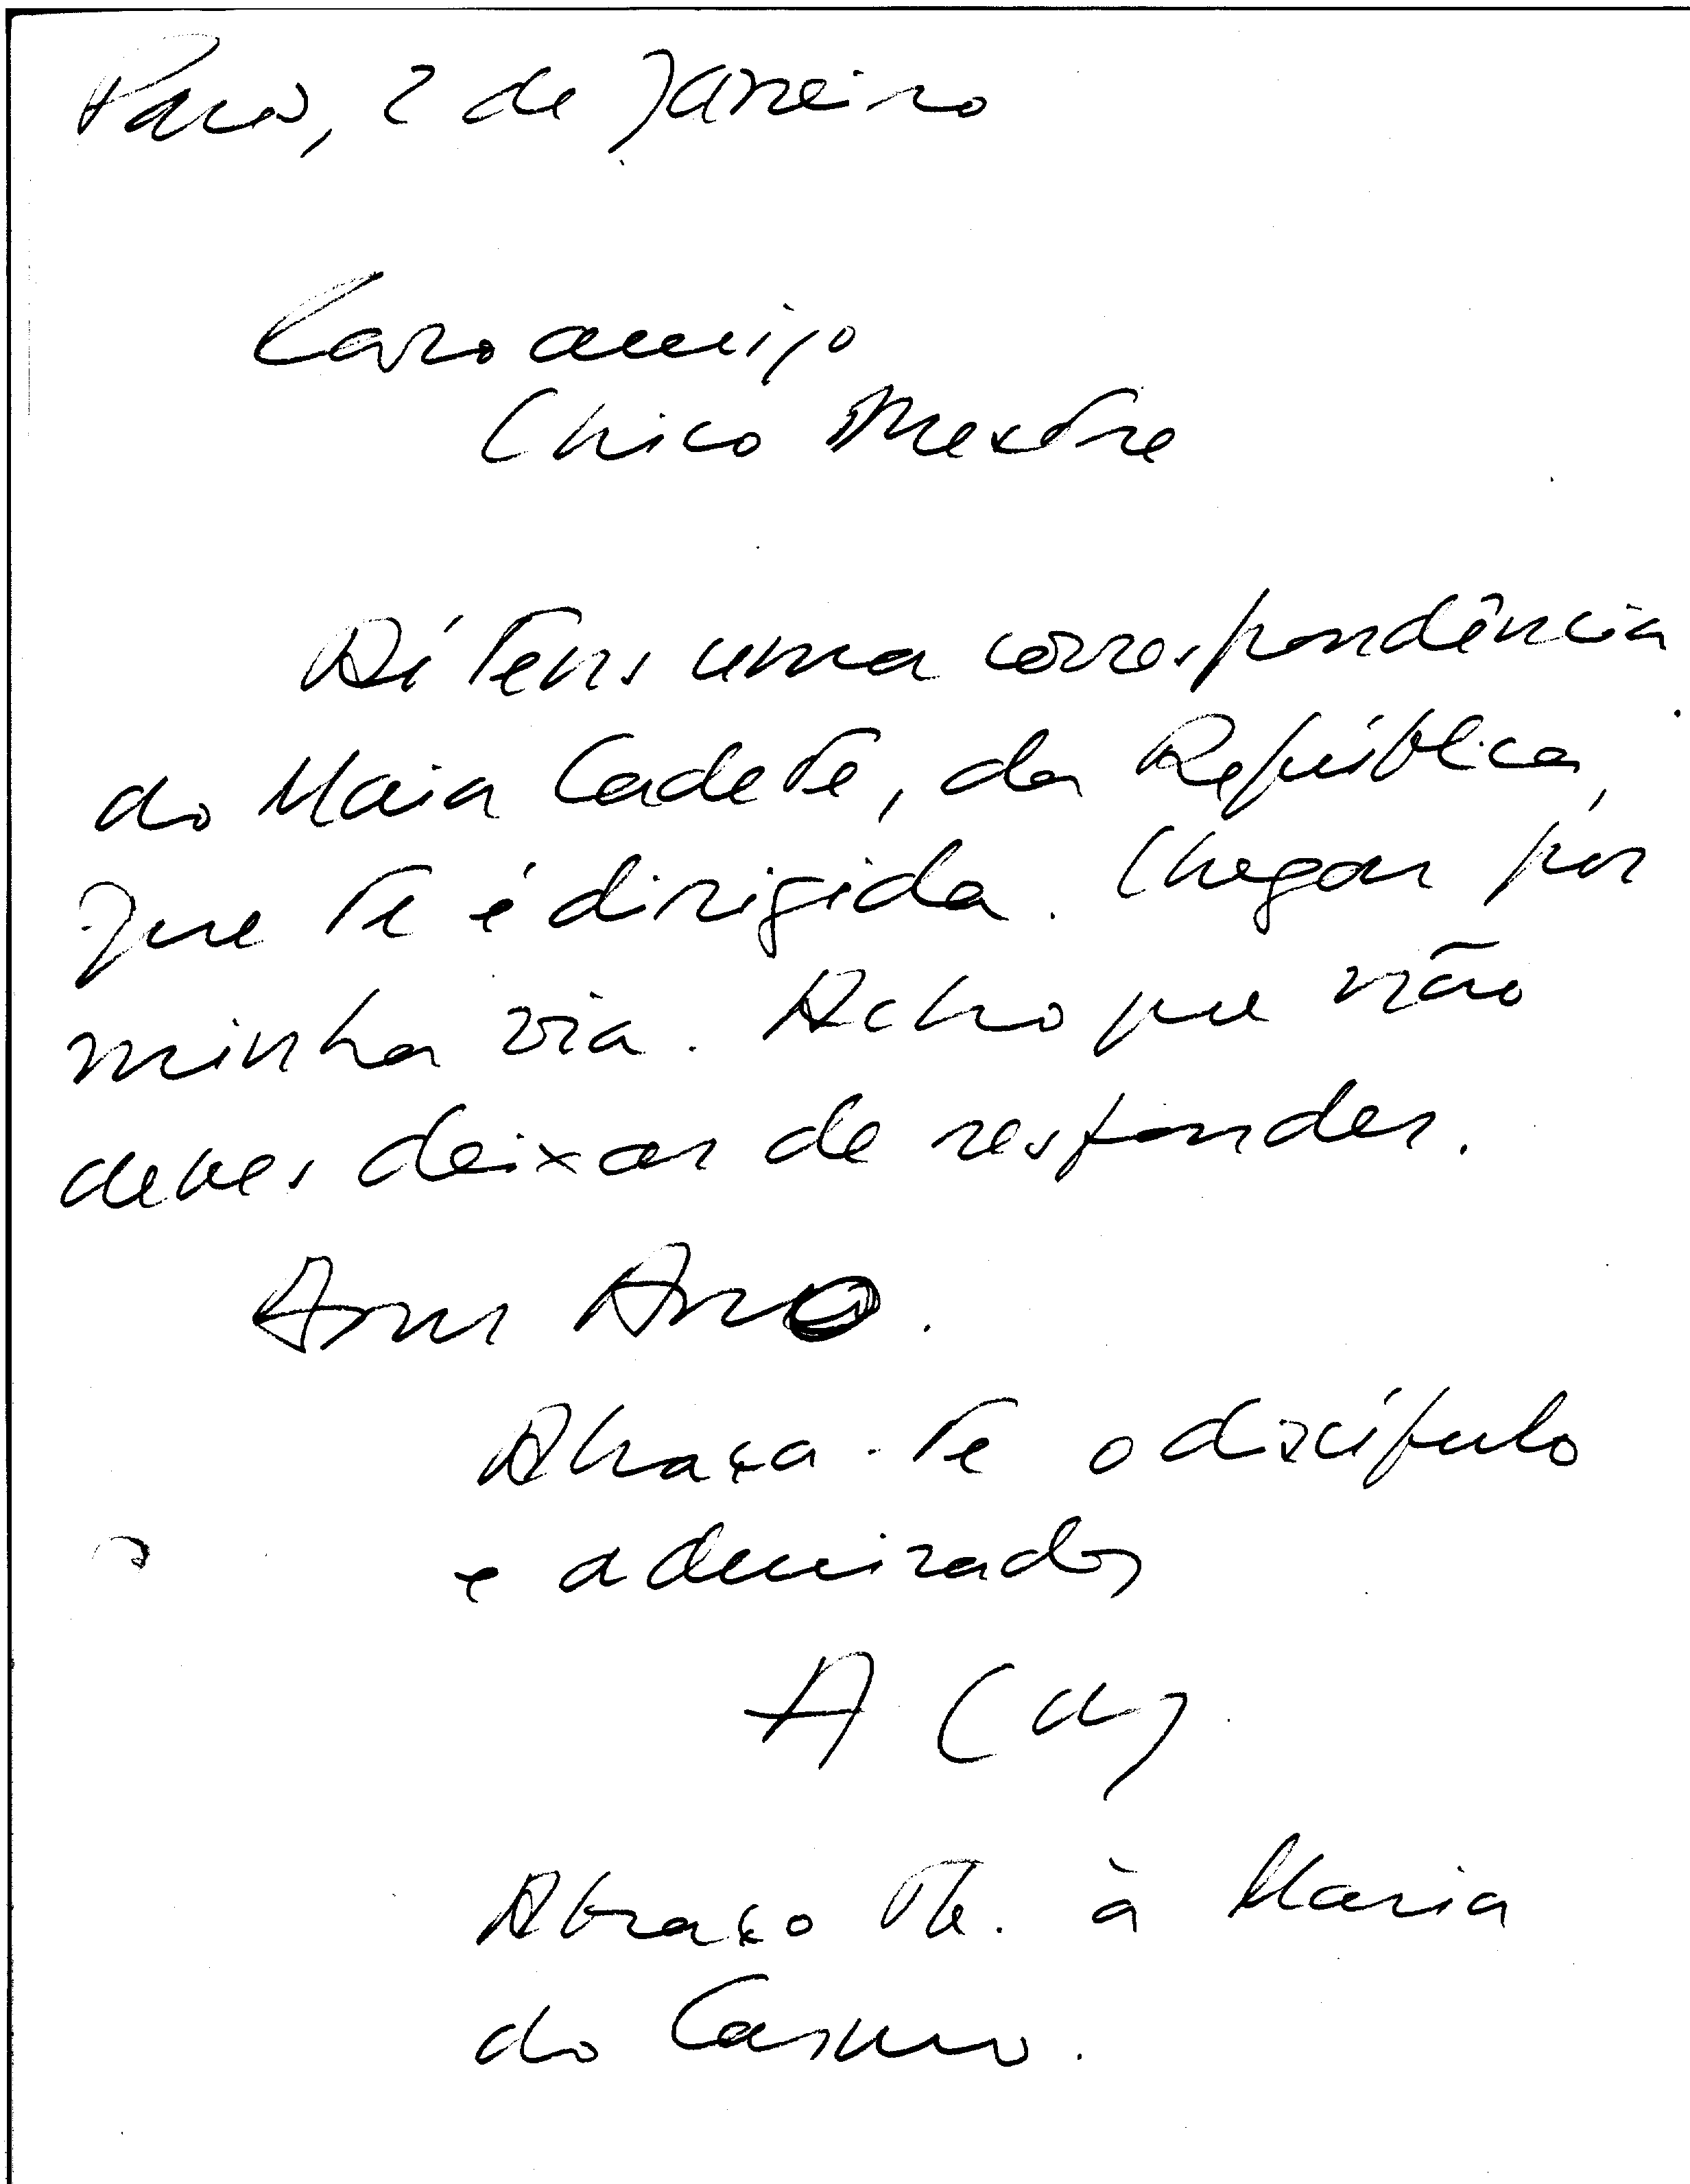 Paris, 2 de Janeiro
Caro amigo
Chico Mestre
Aí tens uma correspondência
do Maia Cadete, da República,
que te é dirigida. Chegou por
minha via. Acho que não
deves deixar de responder.
Bom Ano.
Abraça-te o discípulo
e admirador
A
Abraço tb. à Maria
do Carmo.